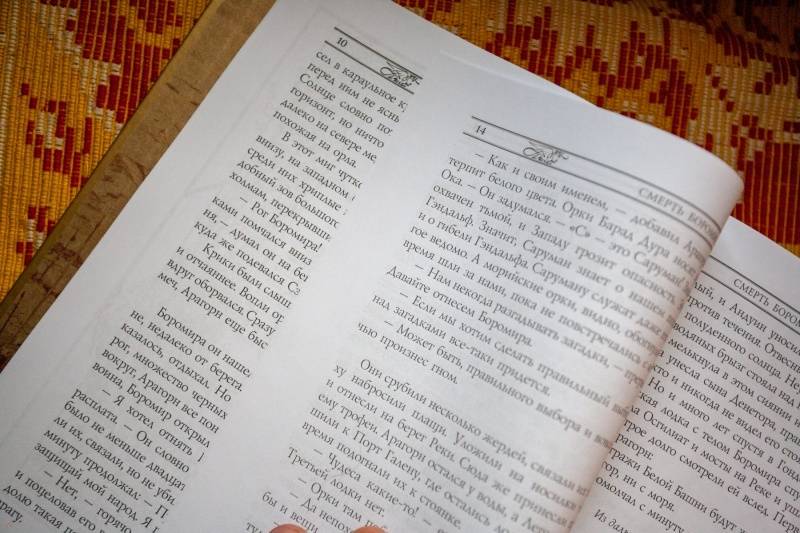 10
сел в караульное к
перед ним не ясн
Солнце словно по
горизонт, но ничто
далеко на севере ме
похожая на орла.
В этот миг чутк
внизу, на западном
среди них хриплые
добный зов большого
холмам, перекрывши
— Рог Боромира!
ками помчался вниз
ня, думал он на бе
куда же подевался Сэ
Крики были слыш
и отчаяннее. Вопли ор
вдруг оборвался. Сразу
меч, Арагорн еще быс
Боромира он наше
не, недалеко от берега.
казалось, отдыхал. Но
рог, множество черных
вокруг. Арагорн все пон
воина, Боромир открыл
— Я хотел отнять
расплата. — Он словно
было не меньше двадцат
ли их, связали, но не уби
минуту продолжал: — П
защищай мой народ. Я
— Нет, — горячо
и поцеловав его в
долю такая по
рагу.
14
СМЕРТЬ БОРО
— Как и своим именем, — добавил Араг
терпит белого цвета. Орки Барад Дура носят
Ока. — Он задумался. — «С» — это Саруман
охвачен тьмой, и Западу грозит опасность, а
Гэндальф. Значит, Саруман знает о нашем
и о гибели Гэндальфа. Саруману служат даже
гое ведомо. А морийские орки, видно, обо
время шли за нами, пока не повстречались с
— Нам некогда разгадывать загадки, — пре
Давайте отнесем Боромира.
— Если мы хотим сделать правильный выб
над загадками все-таки придется.
— Может быть, правильного выбора и вов
чью произнес гном.
Они срубили несколько жердей, связали их
ху набросили плащи. Уложили на носилки
и отнесли на берег Реки. Сюда же принесли
ему трофеи. Арагорн остался у воды, а Лег
шили к Порт Галену, где остались до
время подогнали их к стоянке.
— Чудеса какие-то! —
Третьей лодки нет.
— Орки там раб
— Да непох
бы и вещи
СМЕРТЬ БОРО
ый, и Андуин уносил
против течения. Отвесн
водяных брызг стояла над
полуденного солнца. Не
мелькнула в этом сиянии
унесла сына Денетора, храб
и никогда не видел его стоя
Но и много лет спустя в Гонд
ая лодка с телом Боромира спу
да Осгилиат и мосты на Реке и уш
рое долго смотрели ей вслед. Перв
рагорн:
тражи Белой Башни будут ж
г, ни с моря.
омолчал с минуту
Из даль